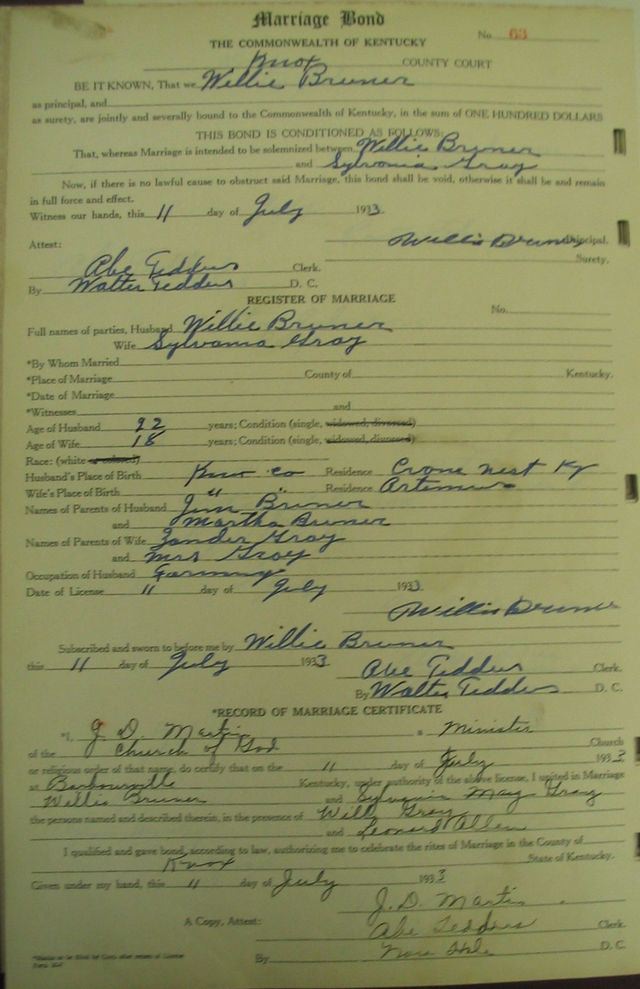 Marriage Bond
No. 63
THE COMMONWEALTH OF KENTUCKY
Knox COUNTY COURT
BE IT KNOWN, That we Willie Bruner
as principal, and
as surety, are jointly and severally bound to the Commonwealth of Kentucky, in the sum of ONE HUNDRED DOLLARS
THIS BOND IS CONDITIONED AS FOLLOWS:
That, whereas Marriage is intended to be solemnized between Willie Bruner
and Sylvania Gray
Now, if there is no lawful cause to obstruct said Marriage, this bond shall be void, otherwise it shall be and remain
in full force and effect.
Witness our hands, this 11 day of July 1933
Willie Bruner Principal.
Attest: Surety.
Abe Tedders Clerk.
By Walter Tedders D. C.
REGISTER OF MARRIAGE
No.
Full names of parties, Husband Willie Bruner
Wife Sylvania Gray
*By Whom Married
*Place of Marriage County of Kentucky.
*Date of Marriage
*Witnesses and
Age of Husband 22 years; Condition (single, widowed, divorced)
Age of Wife 18 years; Condition (single, widowed, divorced)
Race: (white or colored)
Husband's Place of Birth Knox co Residence Crone nest Ky
Wife's Place of Birth " " Residence Artemus
Names of Parents of Husband Jim Bruner
and Martha Bruner
Names of Parents of Wife Zander Gray
and Mrs Gray
Occupation of Husband Farming
Date of License 11 day of July 1933
Willie Bruner
Subscribed and sworn to before me by Willie Bruner
this 11 day of July 1933 Abe Tedders Clerk.
By Walter Tedders D. C.
*RECORD OF MARRIAGE CERTIFICATE
*I, J. D. Martin a Minister
of the Church of God Church
or religious order of that name, do certify that on the 11 day of July 1933
at Barbourville Kentucky, under authority of the above license, I united in Marriage
Willie Bruner and May Gray
the persons named and described therein, in the presence of Will Gray
and Leonard Allen
I qualified and gave bond, according to law, authorizing me to celebrate the rites of Marriage in the County of
Knox State of Kentucky.
Given under my hand, this 11 day of July 1933
J. D. Martin
A Copy, Attest: Abe Tedders Clerk.
By D. C.